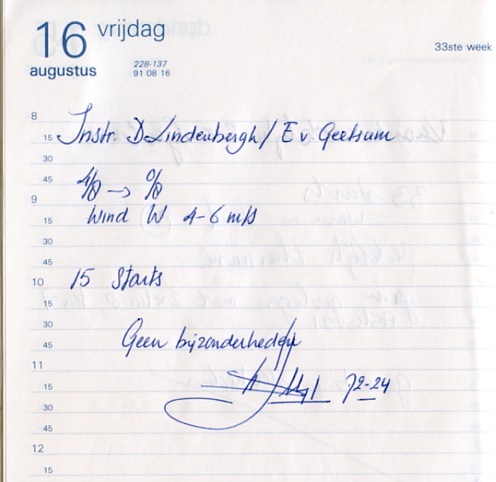 16 vrijdag
augustus
228-137
91 08 16
33ste week
8
15 Instr. D Lindenbergh / E v Geetsum
30
45
9
15 Wind W 4-6 m/s
30
45
10 15 Starts
15
30
45 Geen bijzonderheden
11
15 72-24
30
45
12
15